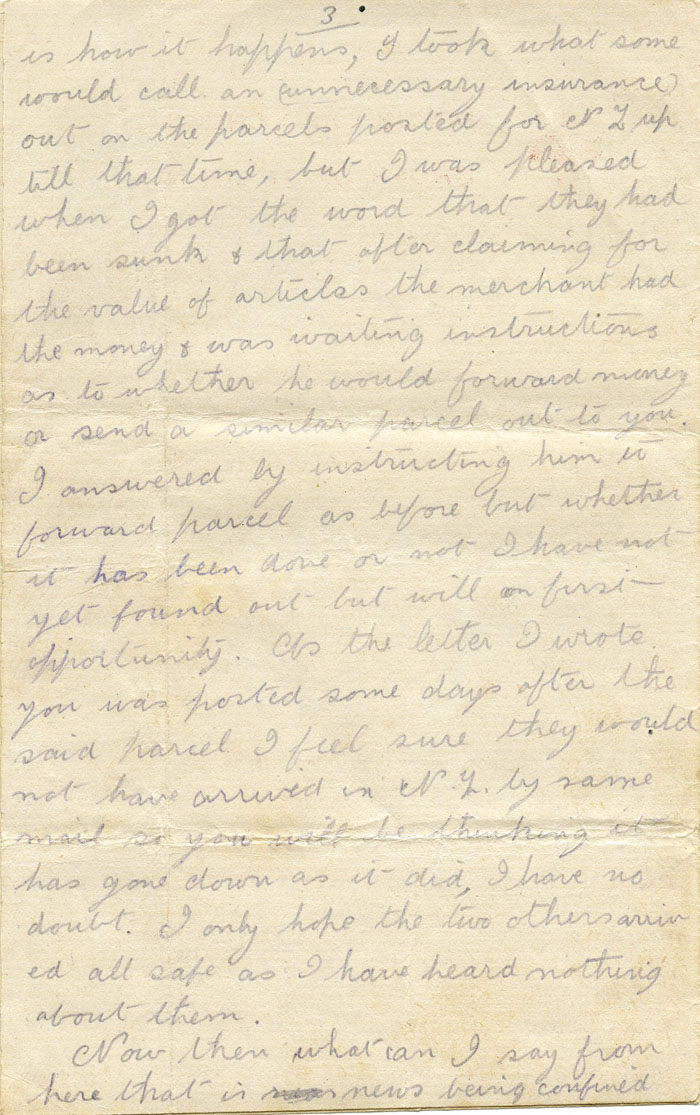 3
is how it happens, I took what some
would call an (unnecessary insurance)
out on the parcels posted for N Z up
till that time, but I was pleased
when I got the word that they had
been sunk & that after claiming for
the value of articles the merchant had
the money & was waiting instructions
as to whether he would forward money
or send a similar parcel out to you.
I answered by instructing him to
forward parcel as before but whether
it has been done or not I have not
yet found out but will on first
opportunity. As the letter I wrote
you was posted some days after the
said parcel I feel sure they would
not have arrived in N.Z. by same
mail so you will be thinking it
has gone down as it did, I have no
doubt. I only hope the two others arriv
ed all safe as I have heard nothing
about them.
Now then what can I say from
here that is news being confined